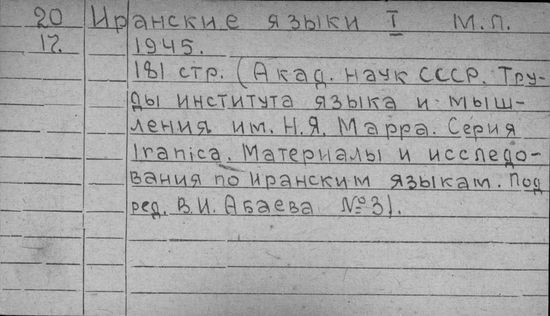 20 Иранские языки I М.Л.
17. 1945.
181 стр. (Акад. наук СССР. Тру-
ды института языка и мыш-
ления им. Н.Я. Марра. Серия
Iranica. Материалы и исследо-
вания по иранским языкам. Под
ред. В.И. Абаева №3).